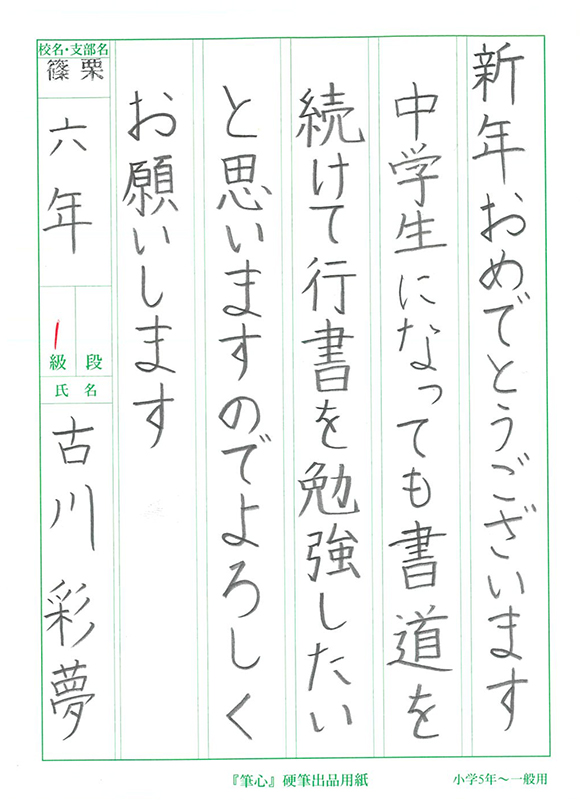 新年おめでとうございます
中学生になっても書道を
続けて行書を勉強したい
と思いますのでよろしく
お願いします
校名・支部名
篠栗
六年
1
級 段
氏名
古川 彩夢
『筆心』硬筆出品用紙
小学5年〜一般用